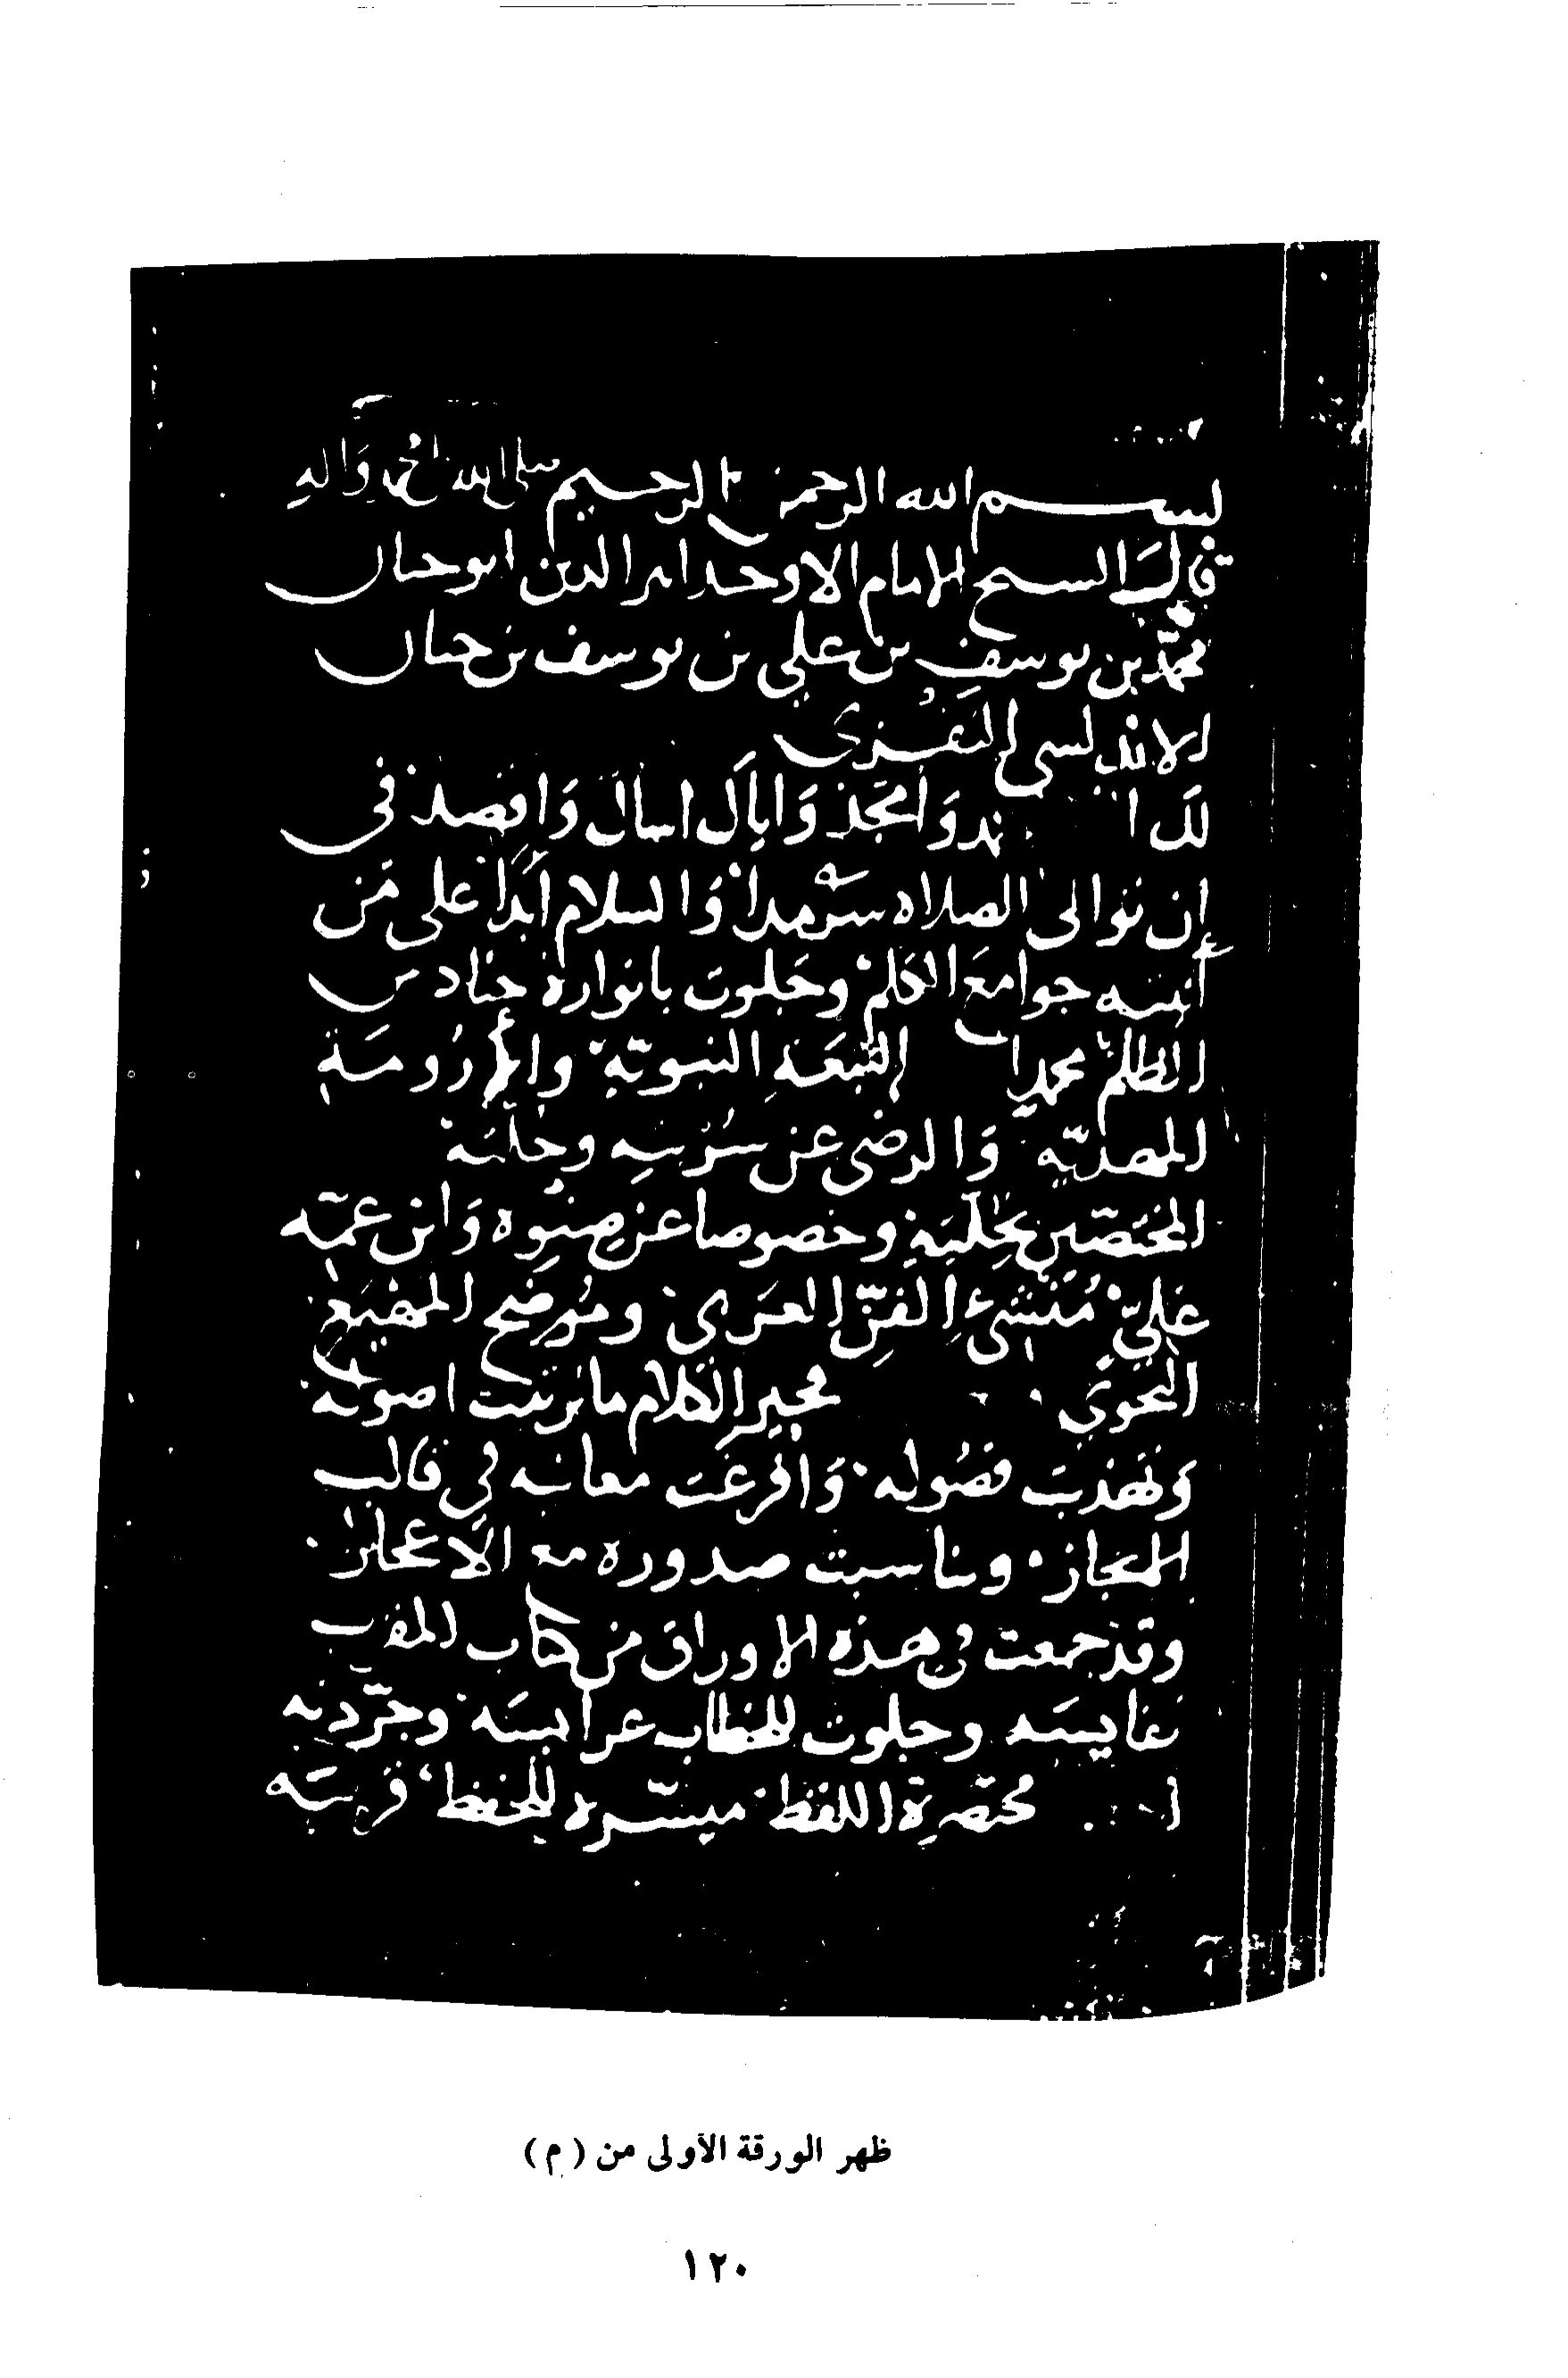 بسم الله الرحمن الرحيم صلى الله على محمد وآله
قال الشيخ الامام الاوحد اثير الدين ابو حيان
محمد بن يوسف بن علي بن يوسف بن حيان
الاندلسي النفزي
لك ا وَأمجّد وَاياكَ اسال وَاقصد في
ان توالى الصلاة سَرْمدا وَالسلام أبَدًا على مَن
أتيته جوامعَ الكلم وجَلوتَ بانواره حنادس
الظلم محمد النبعَة النبوية والأرومَة
وَالرضى عن سِرْبه
المختصّين وخصوصا عن صِنوِه وَابن عمّه
عَليّ مُنشئ الفنّ العَرَبي ومُوضح المهيَع
النحويّ الكلام ما ترتبت اصوله
وتهذبت فصُوله وَافرغت معانيه في قالب
المجاز وناسبت صدوره مع الاعجاز
وقد جمعت في هذه الاوراق من كتاب المقرب
نفايسَه وجلوت للطلاب عرايسَه وجرّدته
مختصرة اللفظ ميسّرة للحفظ قريبَة
ظهر الورقة الأولى من (م)
١٢٠